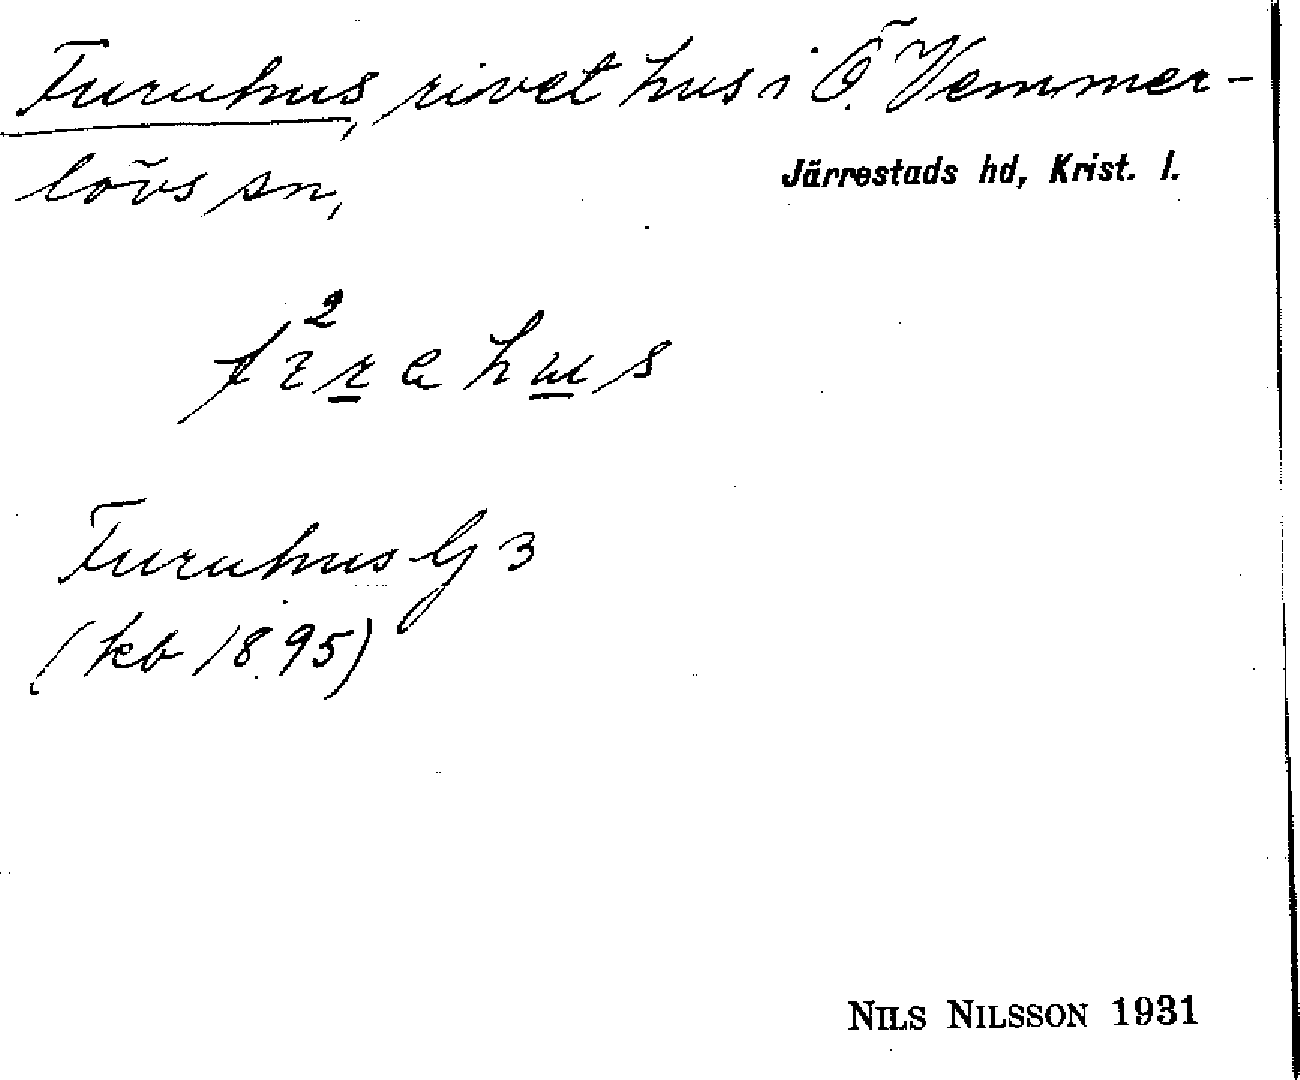 Furuhus, rivet hus i Ö. Vemmer-
lövs sn,
Järrestads hd, Krist. l.
Furuhus G 3
(kb 1895)
NILS NILSSON 1931